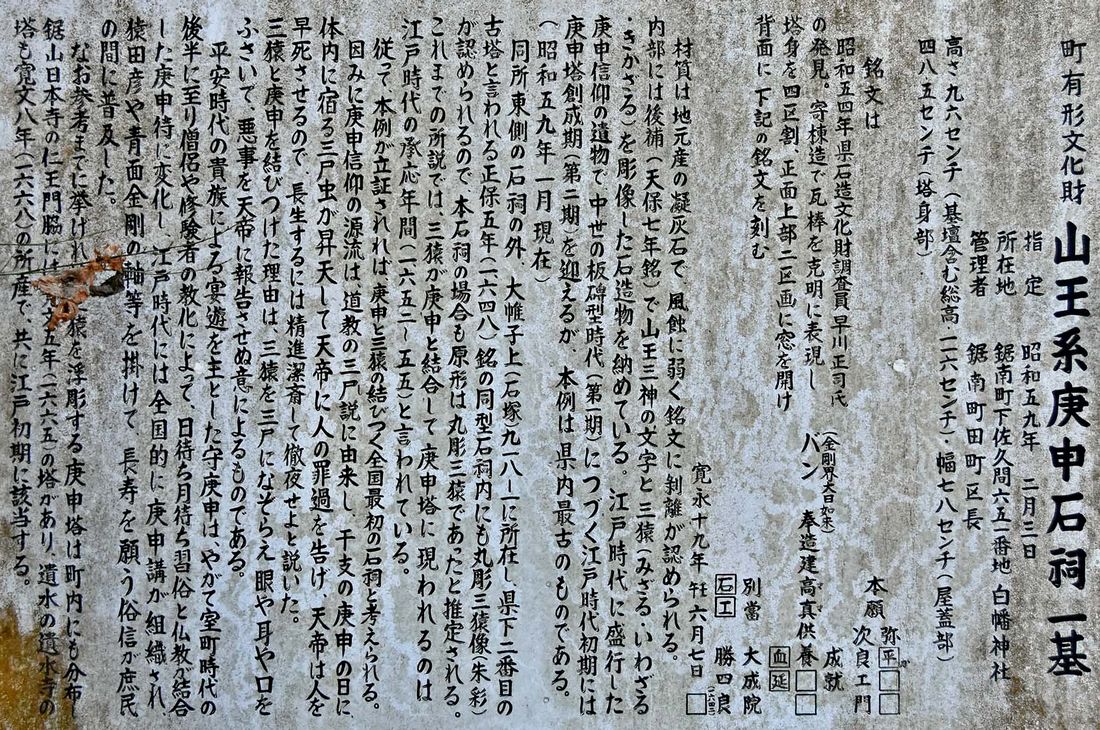 町有形文化財 山王系庚申石祠 一基
指定 昭和五九年 二月三日
所在地 鋸南町下佐久間六五一番地 白幡神社
管理者 鋸南町田町区長
高さ九六センチ(基壇含む総高一一六センチ)・幅七八センチ(屋蓋部)
四八五センチ(塔身部)
昭和五四年県石造文化財調査員 早川正司氏
の発見。寄棟造で瓦棒を克明に表現し
塔身を四区割、正面上部二区画に窓を開け
背面に 下記の銘文を刻む
銘文は
本願 弥平
次良エ門
成就
(金剛界大日如来)
バン 奉造建高真供養
血延
別當 大成院
石工 勝四良
寛永十九年 六月七日
材質は地元産の凝灰石で、風蝕に弱く銘文に剥離が認められる。
内部には後補(天保七年銘)で山王三神の文字と三猿(みざる・いわざる
・きかざる)を彫像した石造物を納めている。江戸時代に盛行した
庚申信仰の遺物で、中世の板碑型時代(第一期)につづく江戸時代初期には
庚申塔創成期(第二期)を迎えるが、本例は県内最古のものである。
(昭和五九年一月現在)
同所東側の石祠の外、大帷子上(石塚)九一八-一に所在し県下二番目の
古塔と言われる正保五年(一六四八)銘の同型石祠内にも丸彫三猿像(朱彩)
が認められるので、本石祠の場合も原形は丸彫三猿であったと推定される。
これまでの所説では、三猿が庚申と結合して庚申塔に現われるのは
江戸時代の承応年間(一六五二~五五)と言われている。
従って、本例が立証されれば、庚申と三猿の結びつく全国最初の石祠と考えられる。
因みに庚申信仰の源流は、道教の三尸説に由来し、干支の庚申の日に
体内に宿る三尸虫が昇天して天帝に人の罪過を告げ、天帝は人を
早死させるので、長生するには精進潔斎して徹夜せよと説いた。
三猿と庚申を結びつけた理由は、三猿を三尸になぞらえ眼や耳や口を
ふさいで、悪事を天帝に報告させぬ意によるものである。
平安時代の貴族による宴遊を主とした守庚申は、やがて室町時代の
後半に至り僧侶や修験者の教化によって、日待ち月待ち習俗と仏教が結合
した庚申待に変化し、江戸時代には全国的に庚申講が組織され、
猿田彦や青面金剛の軸等を掛けて、長寿を願う俗信が庶民
の間に普及した。
なお参考までに挙げれ 猿を浮彫する庚申塔は町内にも分布し
鋸山日本寺の仁王門脇には 五年(一六六五)の塔があり、遺水の遺水寺の
塔も寛文八年(一六六八)の所産で、共に江戸初期に該当する。